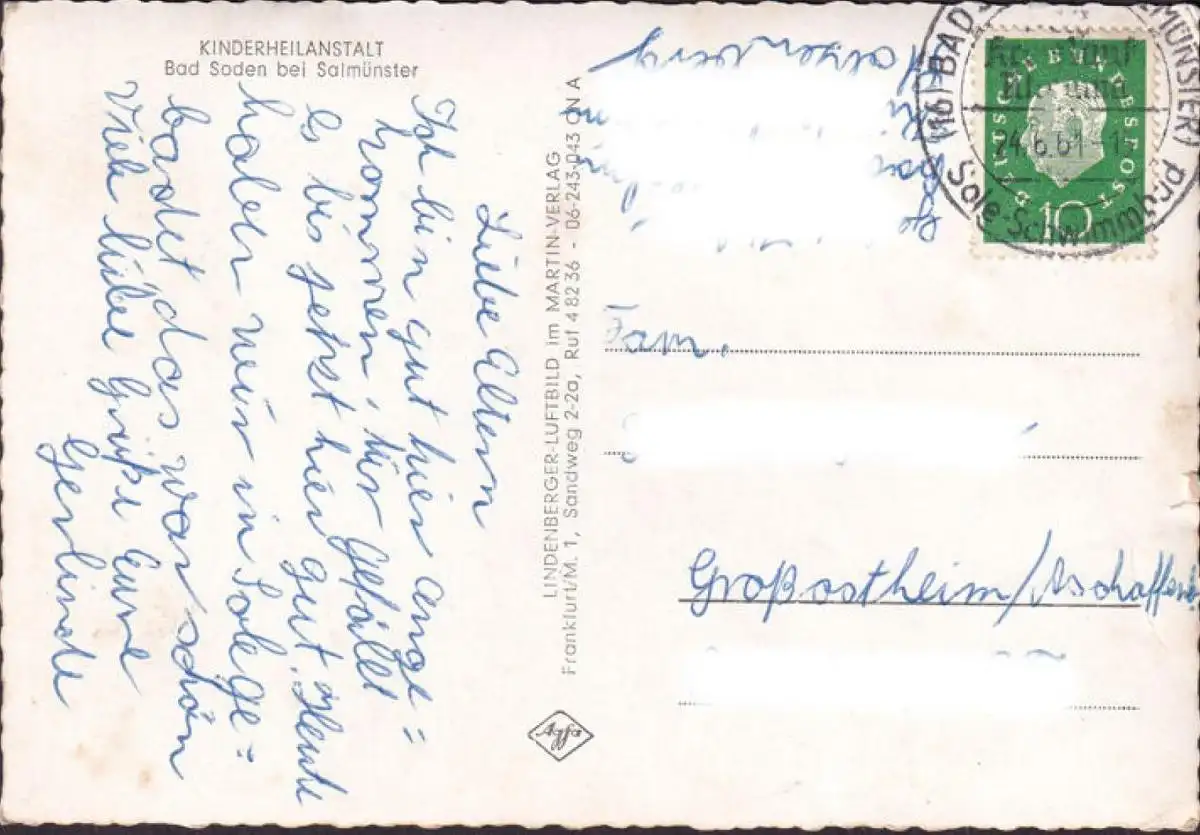 KINDERHEILANSTALT
Bad Soden bei Salmünster
Liebe Eltern
Ich bin gut hier ange=
kommen, Mir gefällt
es bis jetzt hier gut. Heute
haben wir in Sole ge=
badet, das war schön
Viele liebe Grüße Eure
Gerlinde
LINDENBERGER-LUFTBILD im MARTIN-VERLAG
Frankfurt/M. 1, Sandweg 2-2a, Ruf 4 82 36 - 06-243-043 ON A
Agfa
DEUTSCHE BUNDESPOST
10
(16) BAD
MÜNSTER)
24.6.61-1
Sole-Schwimmb
Fam.
Großostheim/Aschaffenb